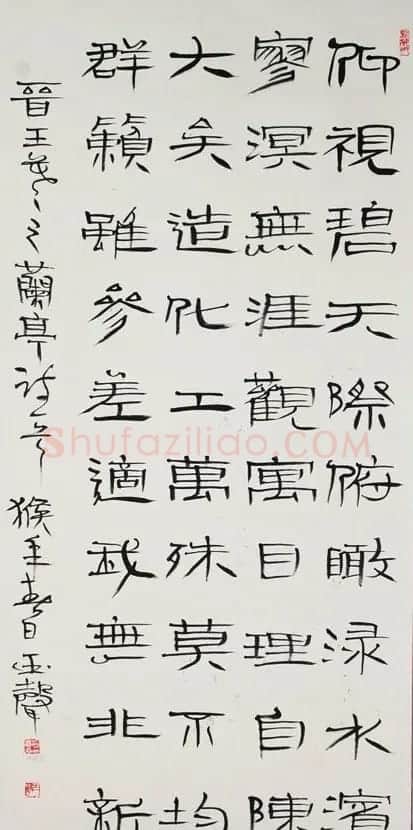 仰視碧天際俯瞰渌水濱
寥溟無涯觀寓目理自陳
大矣造化工萬殊莫不均
群籟雖參差適我無非新
晉王羲之蘭亭詩一首 猴年春日玉聲
Shufaziliao.COM